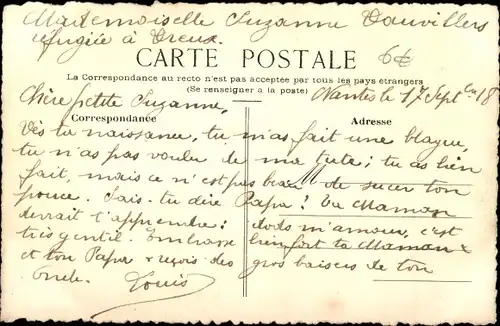 Mademoiselle Suzanne Dauvillers
réfugiée à Dreux.
CARTE POSTALE
6€
La Correspondance au recto n'est pas acceptée par tous les pays étrangers
(Se renseigner à la poste)
Nantes le 17 Septbre 18
Chère petite Suzanne,
Correspondance
Adresse
Dès ta naissance, tu m'as fait une blague,
tu n'as pas voulu de ma tute; tu as bien
fait, mais ce n'est pas beau de sucer ton
pouce. Sais-tu dire Papa? Ta Maman
devrait t'apprendre: dods m'amour, c'est
très gentil. Embrasse bien fort ta Maman
et ton Papa & reçois des gros baisers de ton
Oncle. Louis